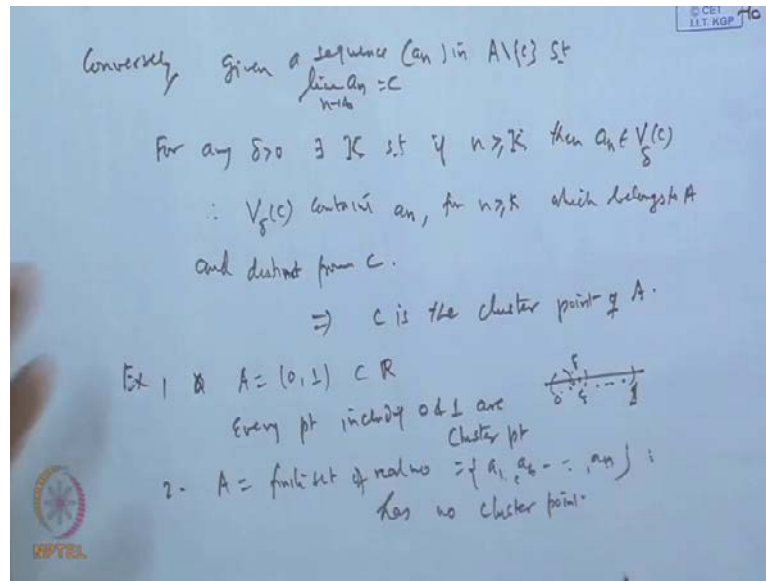 © CET
I.I.T. KGP
Conversely, Given a sequence (an) in A\{c} St
lim an = C
n→∞
For any δ>0 ∃ K s.t if n≥K then an ∈ Vδ(c)
∴ Vδ(c) contains an, for n≥K which belongs to A
and distinct from C.
⇒ C is the cluster point of A.
Ex 1 A = (0,1) ⊂ R
Every pt including 0 & 1 are
Cluster pt
2. A = finite set of real no = {a1, a2 - - , an} :
has no cluster point.
NPTEL